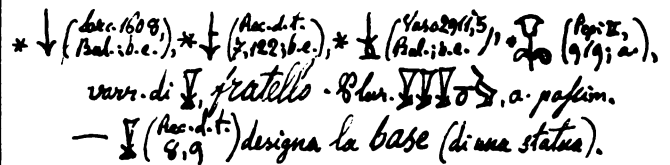 * (Louc. 1608, Bal.; b.e.), * (Rec. d. t. 7, 122; b.e.), * (Vaso 2911, 5 Bal.; b.e.), * (Pepi II, 919; a.),
varr. di , fratello. Plur. , a. passim.
— (Rec. d. t. 8, 9) designa la base (di una statua).